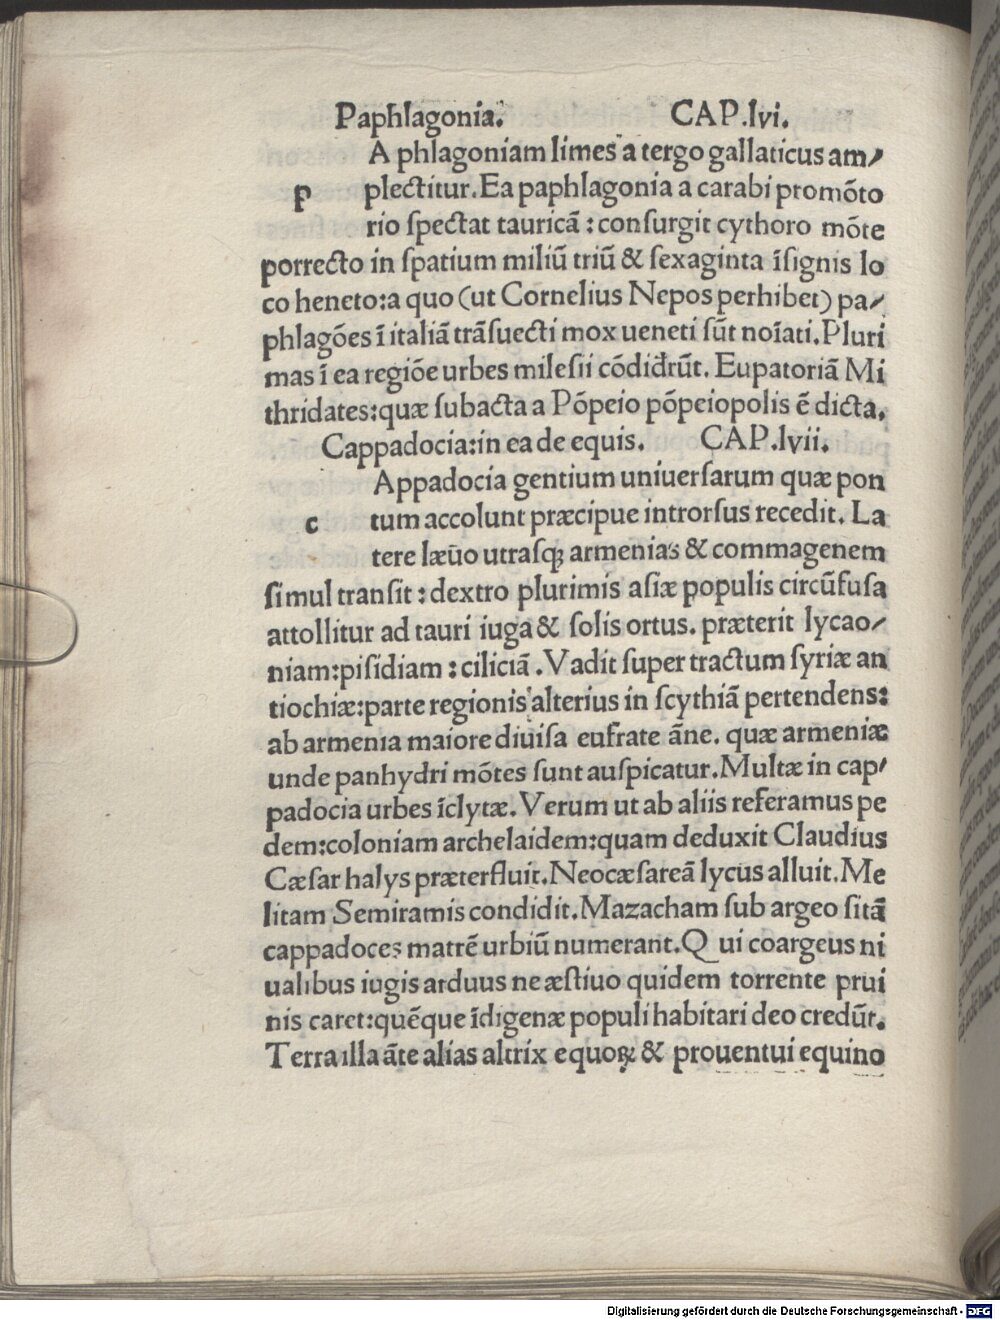 Paphlagonia. CAP.lvi.
A phlagoniam limes a tergo gallaticus am⸗
p plectitur. Ea paphlagonia a carabi promōto
rio ſpectat tauricā : conſurgit cythoro mōte
porrecto in ſpatium miliū triū & ſexaginta īſignis lo
co heneto:a quo (ut Cornelius Nepos perhibet) pa⸗
phlagōes ī italiā trāſuecti mox ueneti ſūt noīati. Pluri
mas ī ea regiōe urbes mileſii cōdidr̄ūt. Eupatoriā Mi
thridates:quæ ſubacta a Pōpeio pōpeiopolis ē dicta.
Cappadocia:in ea de equis. CAP.lvii.
Appadocia gentium uniuerſarum quæ pon
c tum accolunt præcipue introrſus recedit. La
tere læūo utraſqꝫ armenias & commagenem
ſimul tranſit : dextro plurimis aſiæ populis circūfuſa
attollitur ad tauri iuga & ſolis ortus. præterit lycao⸗
niam:piſidiam : ciliciā . Vadit ſuper tractum ſyriæ an
tiochiæ:parte regionis alterius in ſcythiā pertendens:
ab armenia maiore diuiſa eufrate āne. quæ armeniæ
unde panhydri mōtes ſunt auſpicatur. Multæ in cap⸗
padocia urbes īclytæ. Verum ut ab aliis referamus pe
dem:coloniam archelaidem:quam deduxit Claudius
Cæſar halys præterfluit. Neocæſareā lycus alluit. Me
litam Semiramis condidit. Mazacham ſub argeo ſitā
cappadoces matrē urbiū numerant. Q ui coargeus ni
ualibus iugis arduus ne æſtiuo quidem torrente prui
nis caret:quēque īdigenæ populi habitari deo credūt.
Terra illa āte alias altrix equoꝝ & prouentui equino
Digitalisierung gefördert durch die Deutsche Forschungsgemeinschaft - DFG